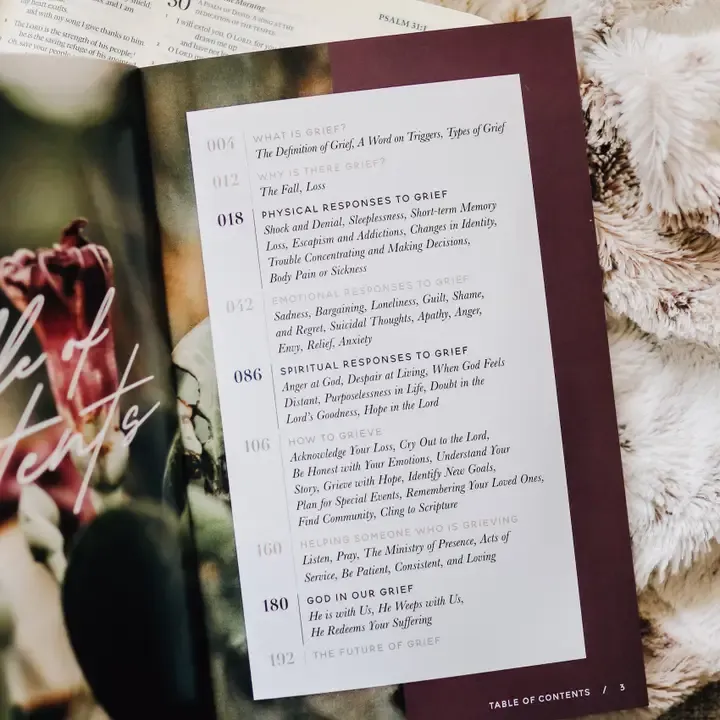 30
A PSALM OF DAVID. A SONG AT THE
DEDICATION OF THE TEMPLE.
I will extol you, O LORD, for you
drawn me up
and have not
O LORD
PSALM 31:1
my heart exults,
and with my song I give thanks to him
The LORD is the strength of his people;
he is the saving refuge of his anointed
Oh save your people
le of
tents
004 WHAT IS GRIEF?
The Definition of Grief, A Word on Triggers, Types of Grief
012 WHY IS THERE GRIEF?
The Fall, Loss
018 PHYSICAL RESPONSES TO GRIEF
Shock and Denial, Sleeplessness, Short-term Memory
Loss, Escapism and Addictions, Changes in Identity,
Trouble Concentrating and Making Decisions,
Body Pain or Sickness
042 EMOTIONAL RESPONSES TO GRIEF
Sadness, Bargaining, Loneliness, Guilt, Shame,
and Regret, Suicidal Thoughts, Apathy, Anger,
Envy, Relief, Anxiety
086 SPIRITUAL RESPONSES TO GRIEF
Anger at God, Despair at Living, When God Feels
Distant, Purposelessness in Life, Doubt in the
Lord's Goodness, Hope in the Lord
106 HOW TO GRIEVE
Acknowledge Your Loss, Cry Out to the Lord,
Be Honest with Your Emotions, Understand Your
Story, Grieve with Hope, Identify New Goals,
Plan for Special Events, Remembering Your Loved Ones,
Find Community, Cling to Scripture
160 HELPING SOMEONE WHO IS GRIEVING
Listen, Pray, The Ministry of Presence, Acts of
Service, Be Patient, Consistent, and Loving
180 GOD IN OUR GRIEF
He is with Us, He Weeps with Us,
He Redeems Your Suffering
192 THE FUTURE OF GRIEF
TABLE OF CONTENTS / 3